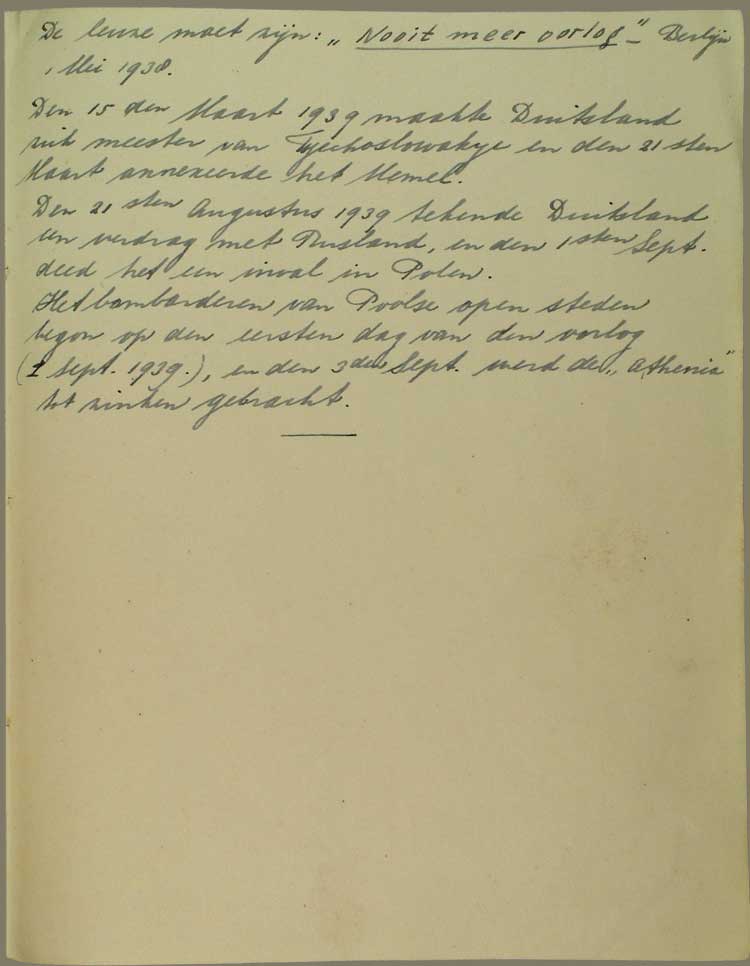 De leuze moet zijn: „Nooit meer oorlog" – Berlijn
1 Mei 1938.
Den 15 den Maart 1939 maakte Duitsland
zich meester van Tsjechoslowakye en den 21 sten
Maart annexeerde het Memel.
Den 21 sten Augustus 1939 tekende Duitsland
een verdrag met Rusland, en den 1sten Sept.
deed het een inval in Polen.
Het bombarderen van Poolse open steden
begon op den eersten dag van den oorlog
(1 Sept. 1939.), en den 3den Sept. werd de „Athenia"
tot zinken gebracht.